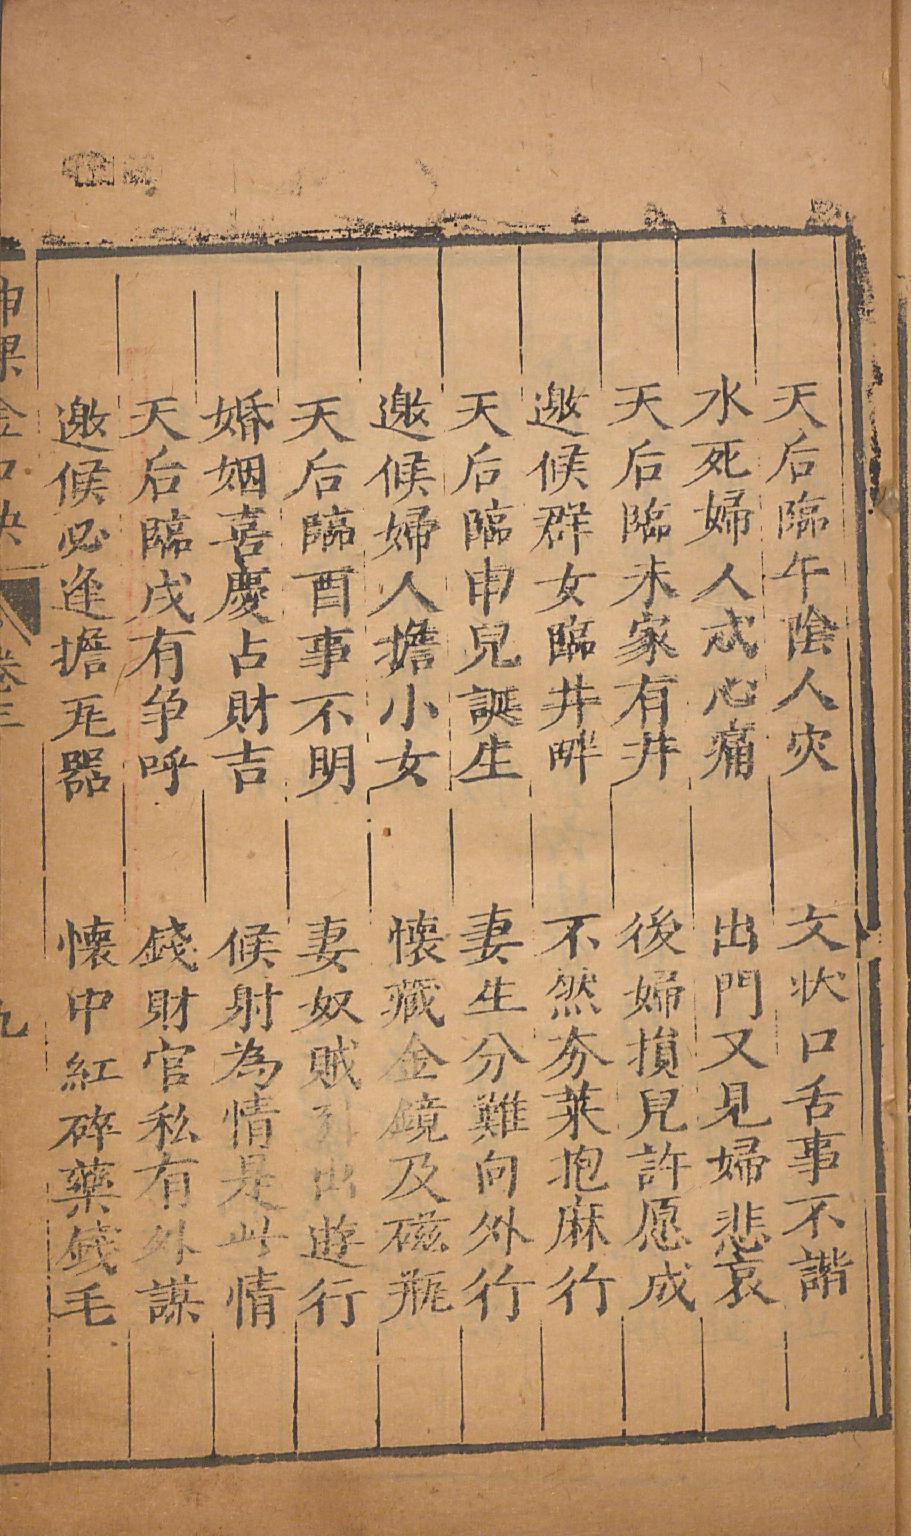 天后臨午陰人灾　文状口舌事不諧
水死婦人忒心痛　出門又見婦悲哀
天后臨未家有井　後婦損兒許愿成
邀候群女臨井畔　不然夯菜抱麻行
天后臨申兒誕生　妻生分難向外行
邀候婦人擔小女　懐藏金鏡及磁瓶
天后臨酉事不明　妻奴賊引出遊行
婚姻喜慶占財吉　候射為情是此情
天后臨戌有争呼　錢財官私有外謀
邀候必逢擔瓦器　懐中紅碎藥錢毛
神課金口决　卷三　九